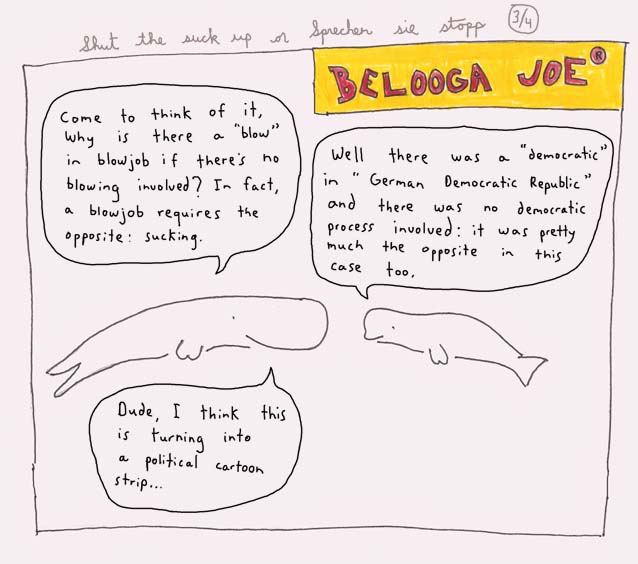 Shut the suck up or Sprechen sie stopp 3/4
BELOOGA JOE®
Come to think of it,
why is there a "blow"
in blowjob if there's no
blowing involved? In fact,
a blowjob requires the
opposite: sucking.
Well there was a "democratic"
in "German Democratic Republic"
and there was no democratic
process involved: it was pretty
much the opposite in this
case too.
Dude, I think this
is turning into
a political cartoon
strip...